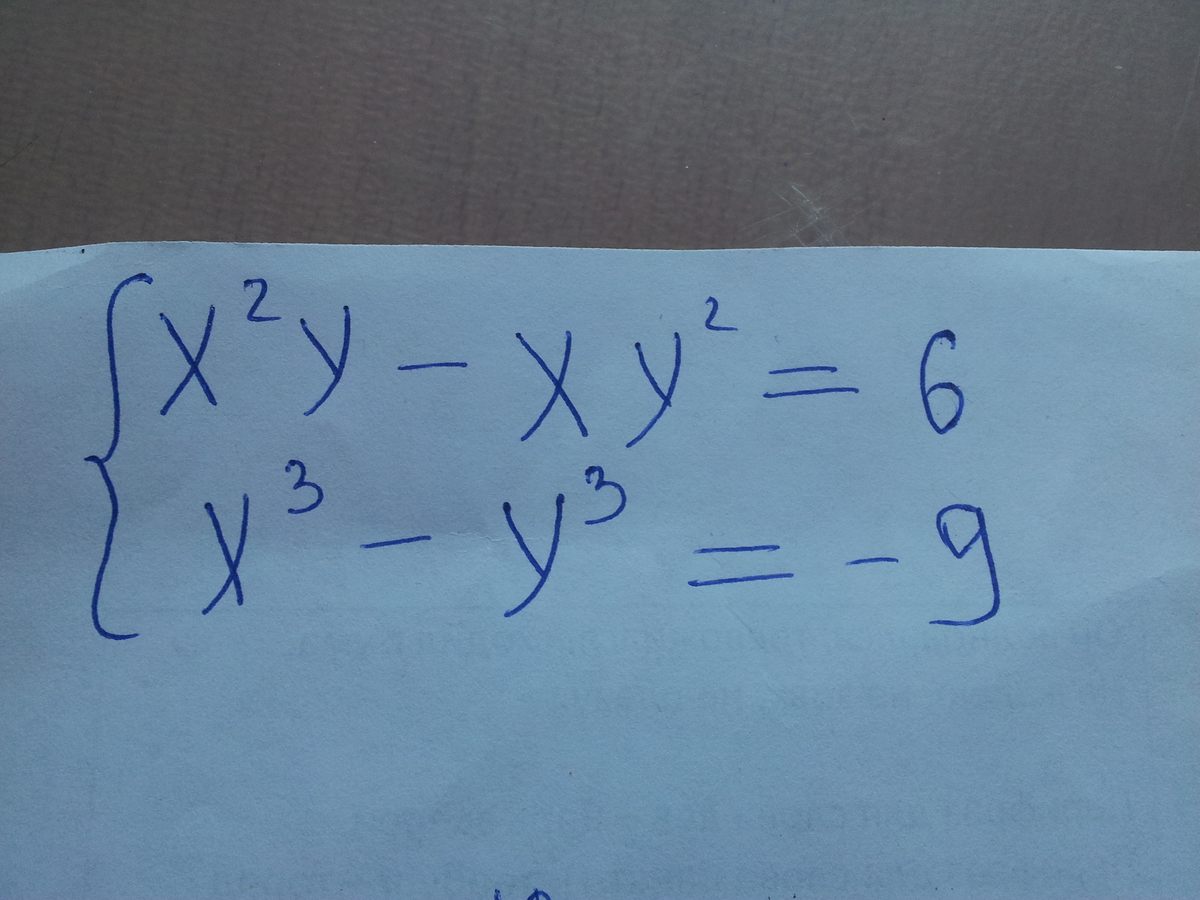 x²y - xy² = 6
x³ - y³ = -9